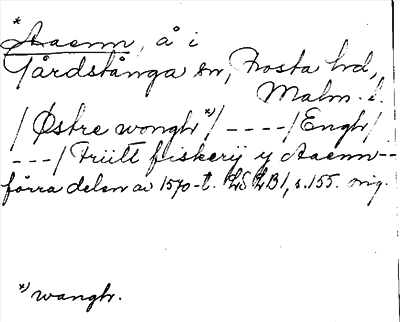 *
Aaenn, å i
Gårdstånga sn, Frosta hd,
Malm. l.
/ Østre wongh *) / - - - - / Engh /
- - - / Friitt fiskerij y Aaenn - -
förra delen av 1570-t. LSLB1, s. 155. orig.
*) wangh.